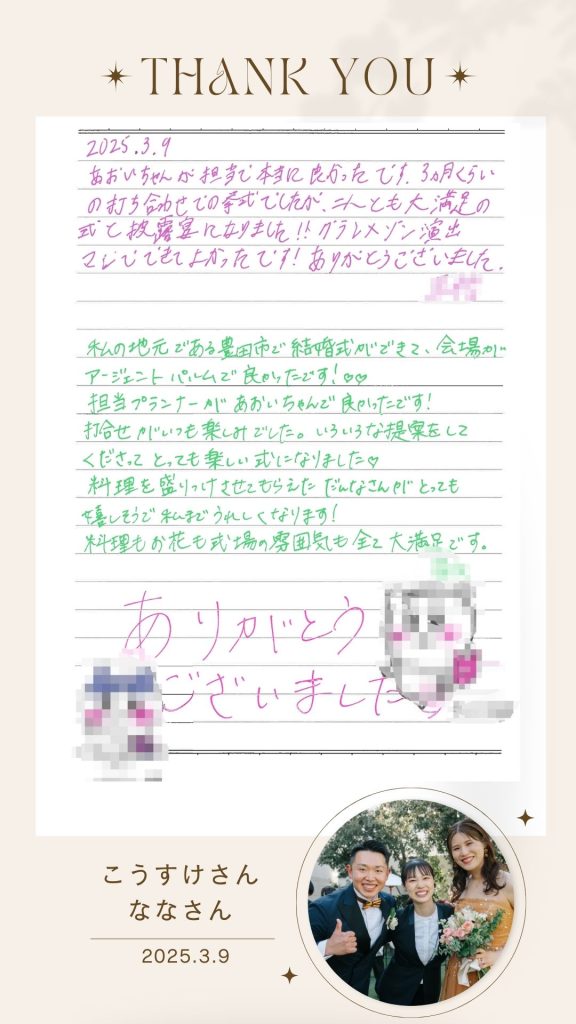 THANK YOU
2025.3.9
あおいちゃんが担当で本当に良かったです。3ヵ月くらい
の打ち合わせでの挙式でしたが、二人とも大満足の
式と披露宴になりました!! グランメゾン演出
マジでできてよかったです! ありがとうございました。
私の地元である豊田市で結婚式ができて、会場が
アージェントパルムで良かったです!♡♡
担当プランナーがあおいちゃんで良かったです!
打合せがいつも楽しみでした。いろいろな提案をして
くださってとっても楽しい式になりました♡
料理を盛りつけさせてもらえただんなさんがとっても
嬉しそうで私までうれしくなります!
料理もお花も式場の雰囲気も全て大満足です。
ありがとう
ございました♡
こうすけさん
ななさん
2025.3.9